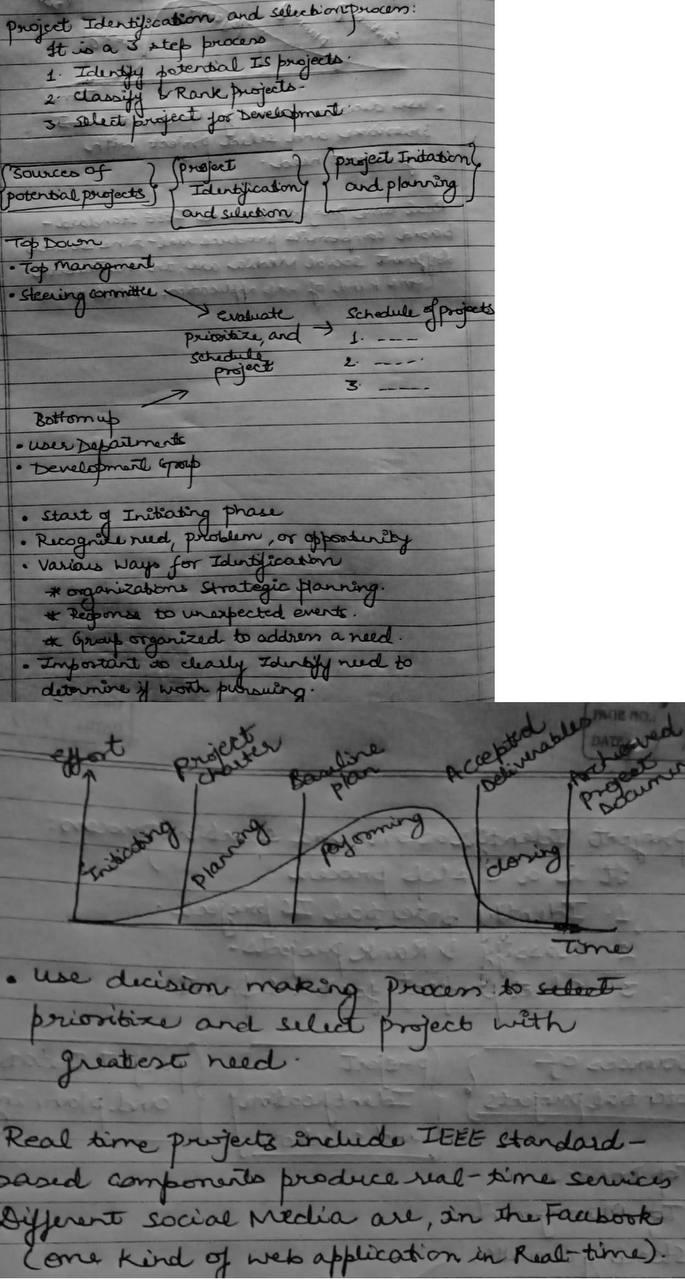 Project Identification and selection process:
It is a 3 step process
1. Identify potential IS projects.
2. Classify & Rank projects.
3. Select project for Development.
Sources of potential projects
Project Identification and selection
project Initation and planning
Top Down
• Top Managment
• Steering committe
evaluate
prioritize, and
schedule
project
Schedule of projects
1. ----
2. -----
3. -----
Bottom up
• User Departments
• Development Group
• Start of Initiating phase
• Recognize need, problem, or opportunity
• Various ways for Identification
* organizations Strategic planning.
* Response to unexpected events.
* Group organized to address a need.
• Important to clearly Identify need to
determine if worth pursuing.
PAGE NO.
DATE
Effort
Project charter
Baseline plan
Accepted Deliverables
Archieved Project Docume
Initiating
Planning
Performing
closing
Time
• Use decision making process to select
prioritize and select project with
greatest need.
Real time projects include IEEE standard-
based components produce real-time services
Different social Media are, in the Facbook
(one kind of web application in Real-time).